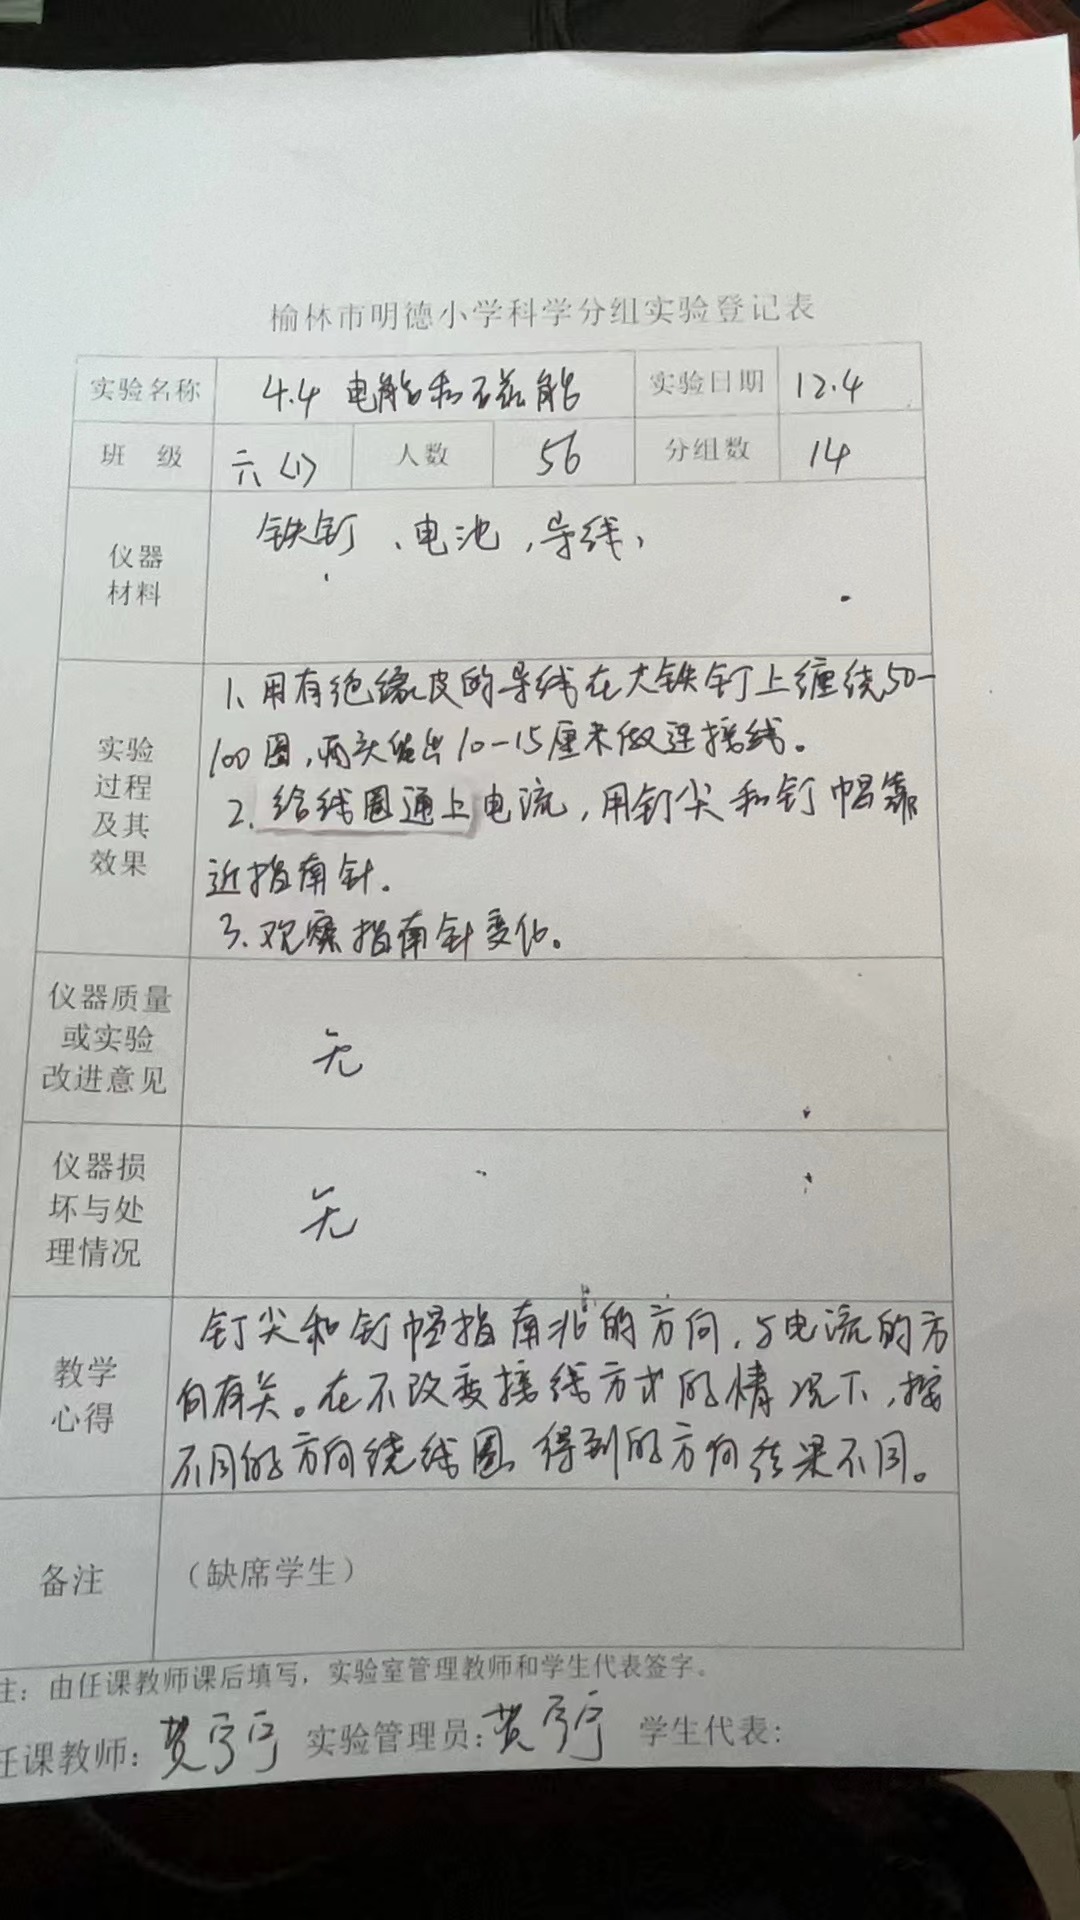 榆林市明德小学科学分组实验登记表
实验名称 4.4 电能和磁能 实验日期 12.4
班 级 六(1) 人数 56 分组数 14
仪器
材料
铁钉、电池,导线,
实验
过程
及其
效果
1、用有绝缘皮的导线在大铁钉上缠绕50-
100圈,两头留出10-15厘米做连接线。
2、给线圈通上电流,用钉尖和钉帽靠
近指南针。
3、观察指南针变化。
仪器质量
或实验
改进意见
无
仪器损
坏与处
理情况
无
教学
心得
钉尖和钉帽指南北的方向,与电流的方
向有关。在不改变接线方式的情况下,按
不同的方向绕线圈,得到的方向结果不同。
备注
(缺席学生)
注:由任课教师课后填写,实验室管理教师和学生代表签字。
任课教师: 实验管理员: 学生代表: